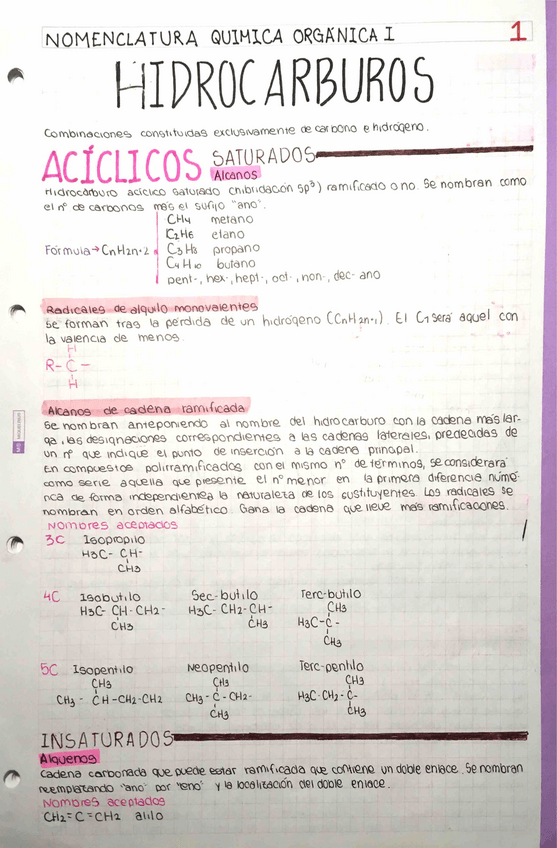 NOMENCLATURA QUIMICA ORGÁNICA I
1
HIDROCARBUROS
Combinaciones constituidas exclusivamente de carbono e hidrógeno.
ACÍCLICOS SATURADOS
Alcanos
Hidrocarburo acíclico saturado (hibridación sp³) ramificado o no. Se nombran como
el nº de carbonos más el sufijo "ano".
CH4 metano
C2H6 etano
Fórmula → CnH2n+2 C3H8 propano
C4H10 butano
pent-, hex-, hept-, oct-, non-, dec- ano
Radicales de alquilo monovalentes
Se forman tras la pérdida de un hidrógeno (CnH2n+1). El C1 será aquel con
la valencia de menos.
H
R- C -
H
Alcanos de cadena ramificada
Se nombran anteponiendo al nombre del hidrocarburo con la cadena más lar-
ga, las designaciones correspondientes a las cadenas laterales, precedidas de
un nº que indique el punto de inserción a la cadena principal.
En compuestos polirramificados con el mismo nº de términos, se considerará
como serie aquella que presente el nº menor en la primera diferencia numé-
rica de forma independiente a la naturaleza de los sustituyentes. Los radicales se
nombran en orden alfabético. Gana la cadena que lleve más ramificaciones.
Nombres aceptados
3C Isopropilo
H3C- CH-
CH3
4C Isobutilo Sec-butilo Terc-butilo
CH3
H3C- CH-CH2- H3C- CH2-CH- H3C-C-
CH3 CH3 CH3
5C Isopentilo Neopentilo Terc-pentilo
CH3 CH3 CH3
CH3 - CH -CH2-CH2 CH3- C -CH2- H3C-CH2-C-
CH3 CH3
INSATURADOS
Alquenos
Cadena carbonada que puede estar ramificada que contiene un doble enlace. Se nombran
reemplazando "ano" por "eno" y la localización del doble enlace.
Nombres aceptados
CH2=C=CH2 alilo